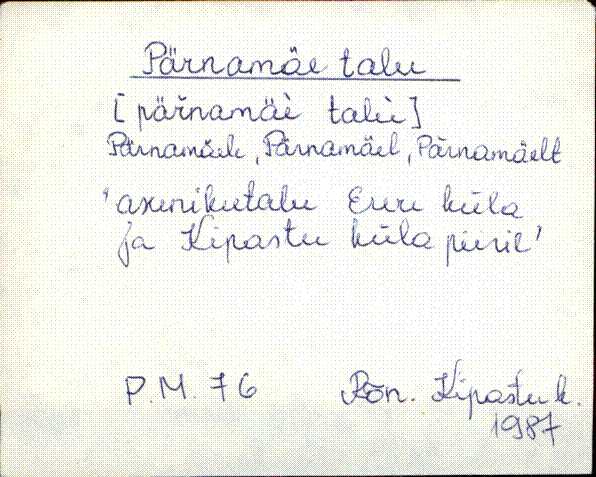 Pärnamäe talu
[pärnamäè talù]
Pärnamäele, Pärnamäel, Pärnamäelt
'asunikutalu Eeru küla
ja Kipastu küla piiril'
P.M. 76 Rõn. Kipastu k.
1987